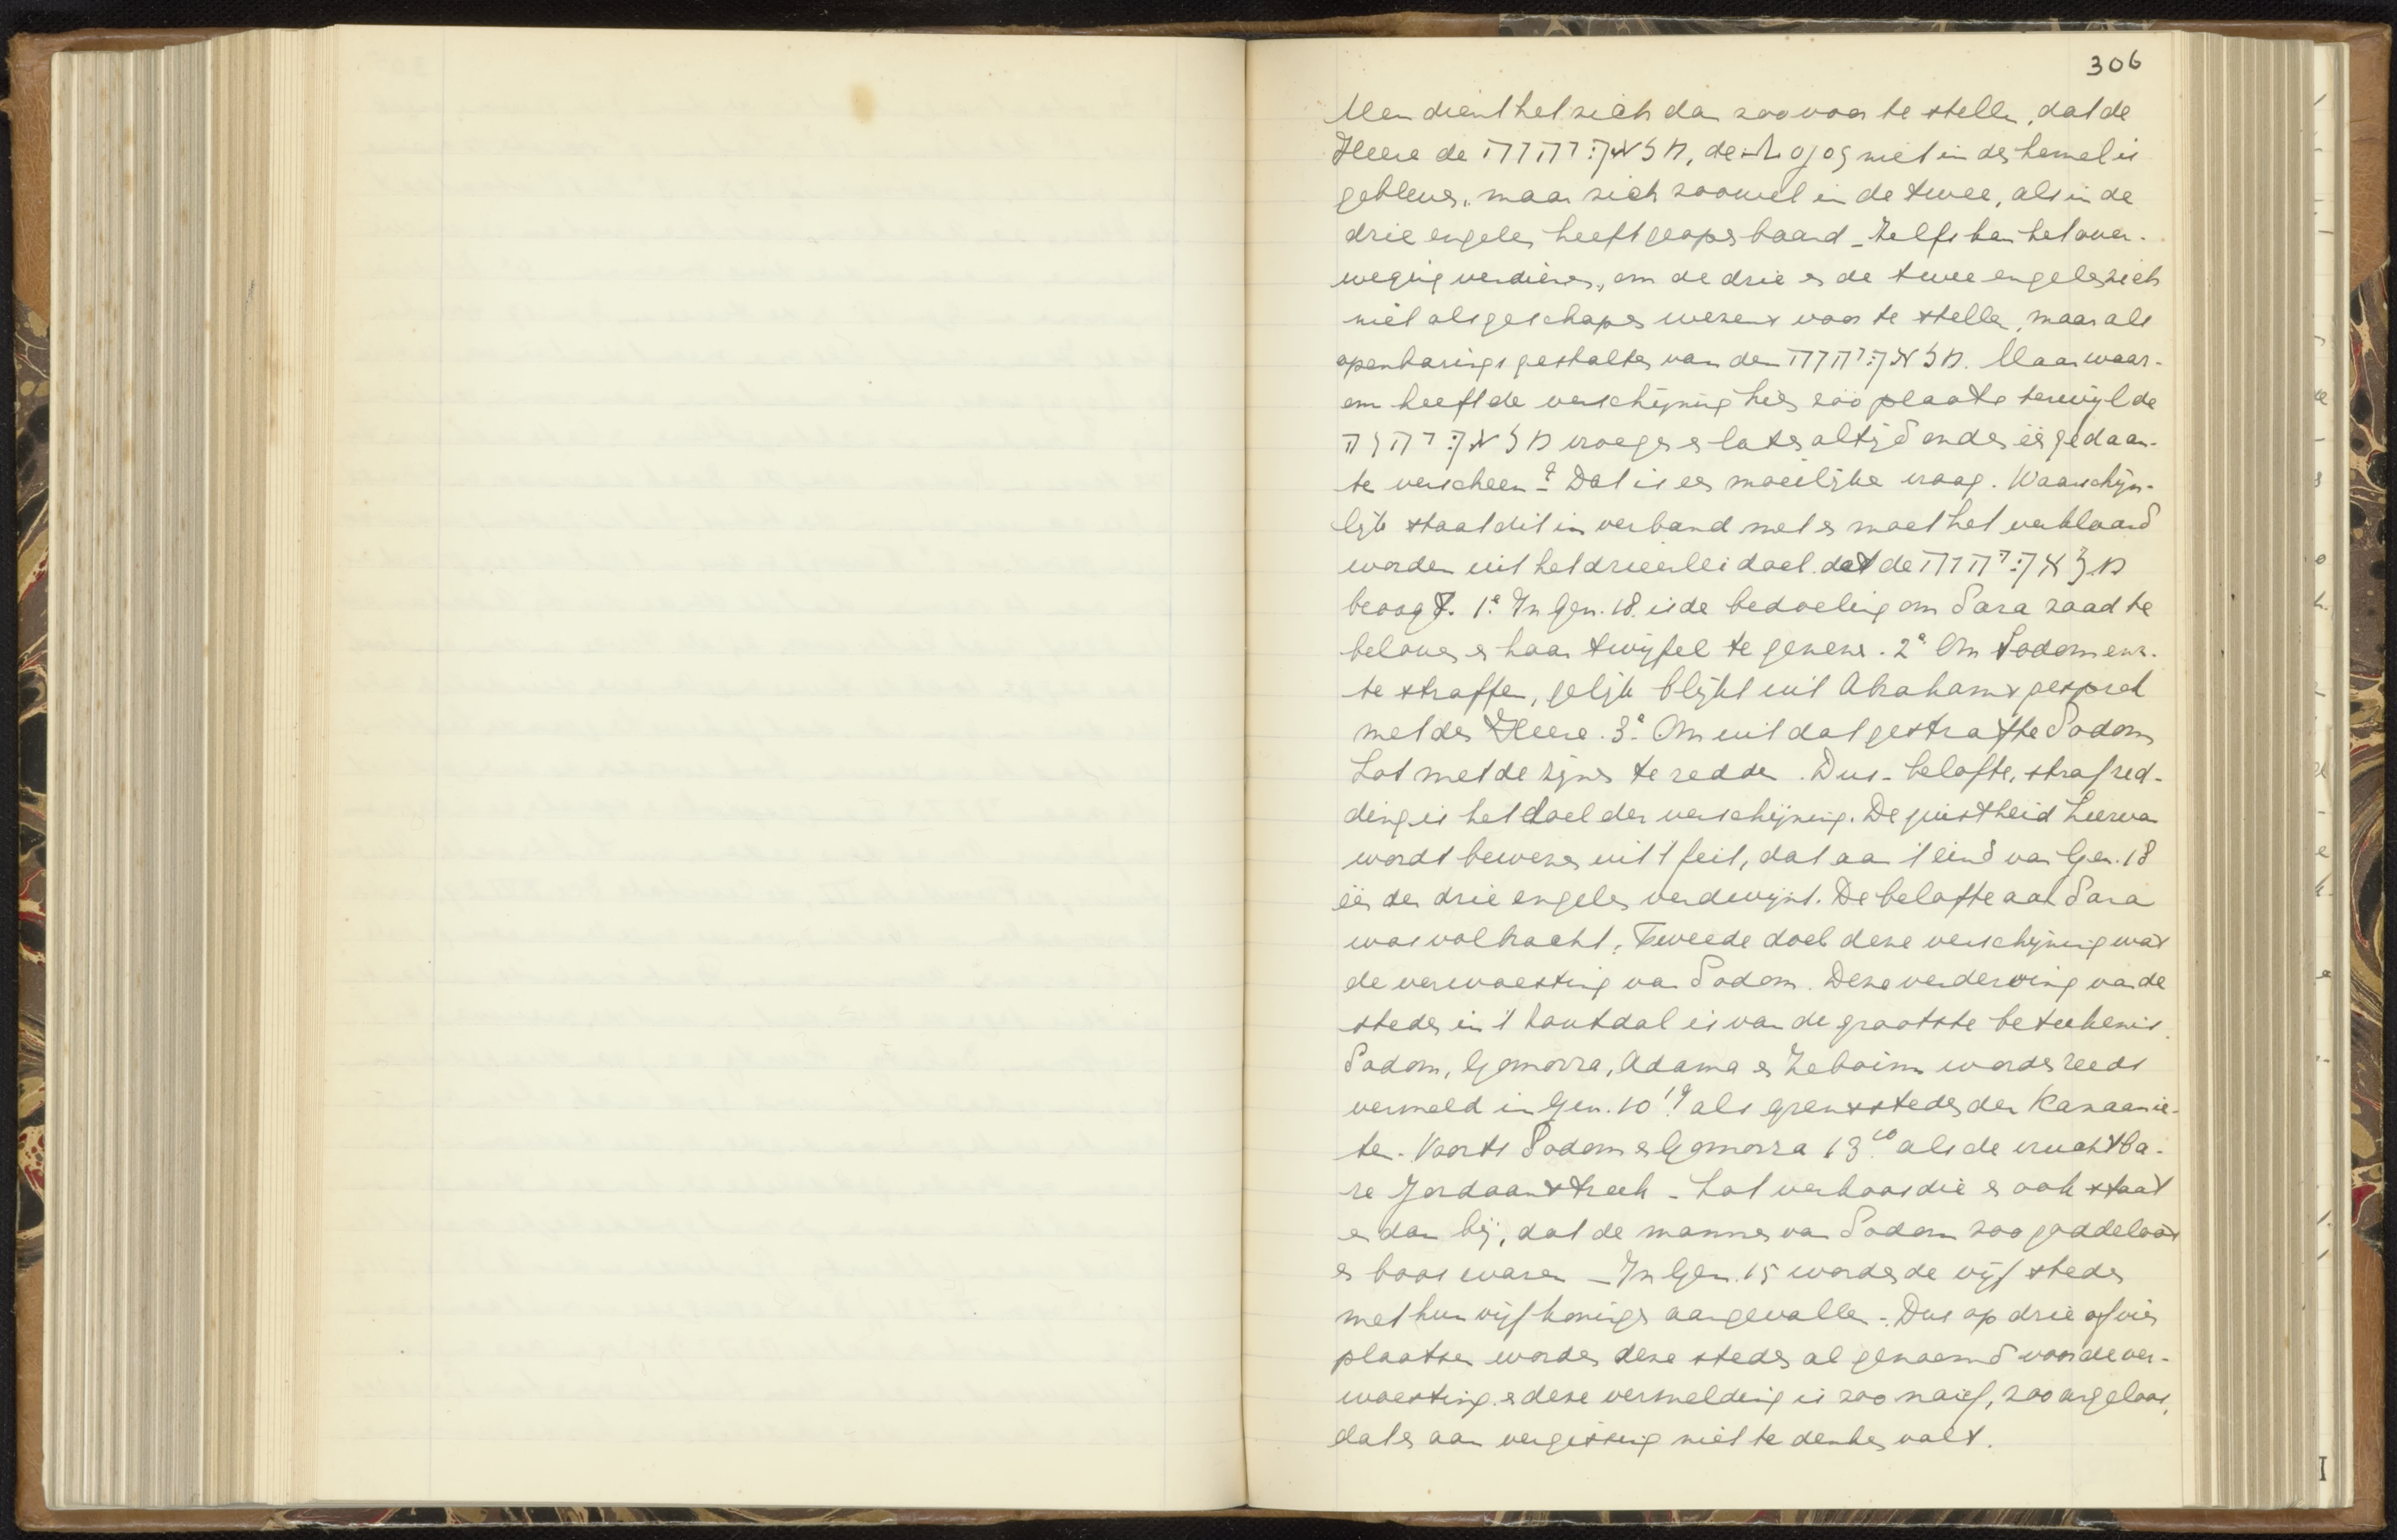 306
Men dient het zich dan zoo voor te stellen, dat de
Heere de מלאך יהוה, de Λογος niet in den hemel is
gebleven, maar zich zoowel in de twee, als in de
drie engelen heeft geopenbaard – Zelfs kan het over-
weging verdienen, om de drie en de twee engelen zich
niet als geschapen wezens voor te stellen, maar als
openbaringsgestalten van den מלאך יהוה. Maar waar-
om heeft de verschijning hier zóó plaats terwijl de
מלאך יהוה vroeger en later altijd onder één gedaan-
te verscheen? Dat is een moeilijke vraag. Waarschijn-
lijk staat dit in verband met en moet het verklaard
worden uit het drieërlei doel dat de מלאך יהוה
beoogt. 1e In Gen. 18 is de bedoeling om Sara zaad te
beloven en haar twijfel te genezen. 2e Om Sodom enz.
te straffen, gelijk blijkt uit Abrahams gesprek
met den Heere. 3e Om uit dat gestrafte Sodom
Lot met de zijnen te redden. Dus – belofte, straf, red-
ding is het doel der verschijning. De juistheid hiervan
wordt bewezen uit 't feit, dat aan 't eind van Gen. 18
één der drie engelen verdwijnt. De belofte aan Sara
was volbracht. Tweede doel dezer verschijning was
de verwoesting van Sodom. Deze verderving van de
steden in 't zoutdal is van de grootste beteekenis.
Sodom, Gomorra, Adama en Zeboïm worden reeds
vermeld in Gen. 10 19 als grenssteden der Kanaänie-
ten. Voorts Sodom en Gomorra 13 10 als de vruchtba-
re Jordaanstreek – Lot verkoos die en ook staat
er dan bij, dat de mannen van Sodom zoo goddeloos
en boos waren – In Gen. 15 worden de vijf steden
met hun vijf koningen aangevallen. Dus op drie of vier
plaatsen worden deze steden al genoemd voor de ver-
woesting en deze vermelding is zoo naïef, zoo argeloos,
dat er aan vergissing niet te denken valt.